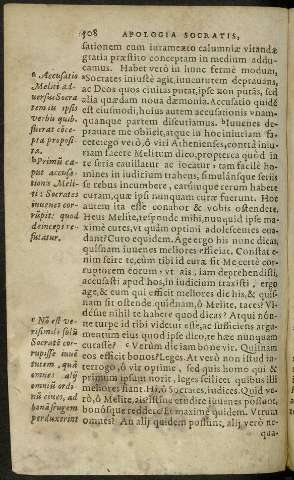 508 APOLOGIA SOCRATIS,
sationem cum iuramẽto calumniæ vitandæ
gratia præstito conceptam in medium addu-
camus. Habet verò in hunc fermè modum,
Socrates iniustè agit, iuuentutem deprauans,
ac Deos quos ciuitas putat, ipse non putãs, sed
alia quædam noua dæmonia. Accusatio quidẽ
est eiusmodi, huius autem accusationis vnam-
quanque partem discutiamus. Iuuenes de-
prauare me obiicit, atque in hoc iniuriam fa-
cere: ego verò, ô viri Athenienses, contrà iniu-
riam facere Melitum dico, propterea quòd in
re seria cauillatur ac iocatur, tam facilè ho-
mines in iudicium trahens, simulánsque seriis
se rebus incumbere, earúmque rerum habere
curam, quæ ipsi nunquam curæ fuerunt. Hoc
autem ita esse conabor & vobis ostendere.
Heus Melite, responde mihi, nunquid ipse ma-
ximè cures, vt quàm optimi adolescentes eua-
dant? Curo equidem. Age ergo his nunc dicas,
quisnam iuuenes meliores efficiat. Constat e-
nim scire te, cùm tibi id curæ sit. Me certè cor-
ruptorem eorum, vt ais, iam deprehendisti,
accusasti apud hos, in iudicium traxisti, ergo
age, & eum qui efficit meliores dic his, & quis-
nam sit ostende. quidnam, ô Melite, taces? Vi-
désne nihil te habere quod dicas? Atqui nón-
ne turpe id tibi videtur esse, ac sufficiens argu-
mentum eius quod ipse dico, te hæc nunquam
curasse? Verùm dic iam bone vir, Quisnam
eos efficit bonos? Leges. At verò non istud in-
terrogo, ô vir optime, sed quis homo qui &
primùm ipsum norit, leges scilicet quibus illi
meliores fiant. Hi, ô Socrates, iudices. Quid ve-
rò, ô Melite, aísne istos erudire iuuenes possunt,
bonósque reddere? Et maximè quidem. Vtrum
omnes? An alij quidem possunt, alij verò ne-
qua-
a Accusatio
Meliti ad-
uersus Socra
tem iis ipsis
verbis quib.
fuerat côce-
pta proposi-
ta.
b Primũ ca-
put accusa-
tionis Meli-
ti: Socrates
iuuenes cor-
rũpit: quod
deinceps re-
futatur.
c Nõ est ve-
risimile solũ
Socratẽ cor-
rupisse iuuẽ
tutem, quã
omnes alij
omniũ ordi-
nũ ciues, ad
bonã frugem
perduxerint